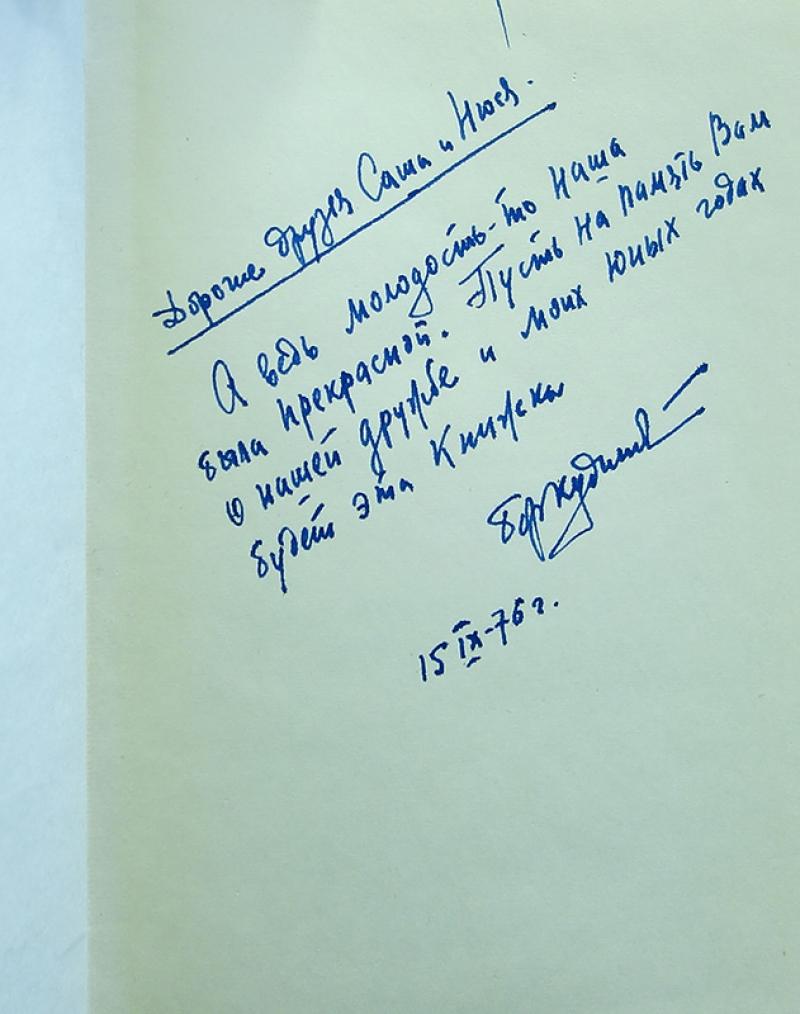 Дорогие друзья Саша и Нюся.
А ведь молодость-то наша
была прекрасной. Пусть на память Вам
о нашей дружбе и моих юных годах
будет эта Книжка
15 IX-76 г.